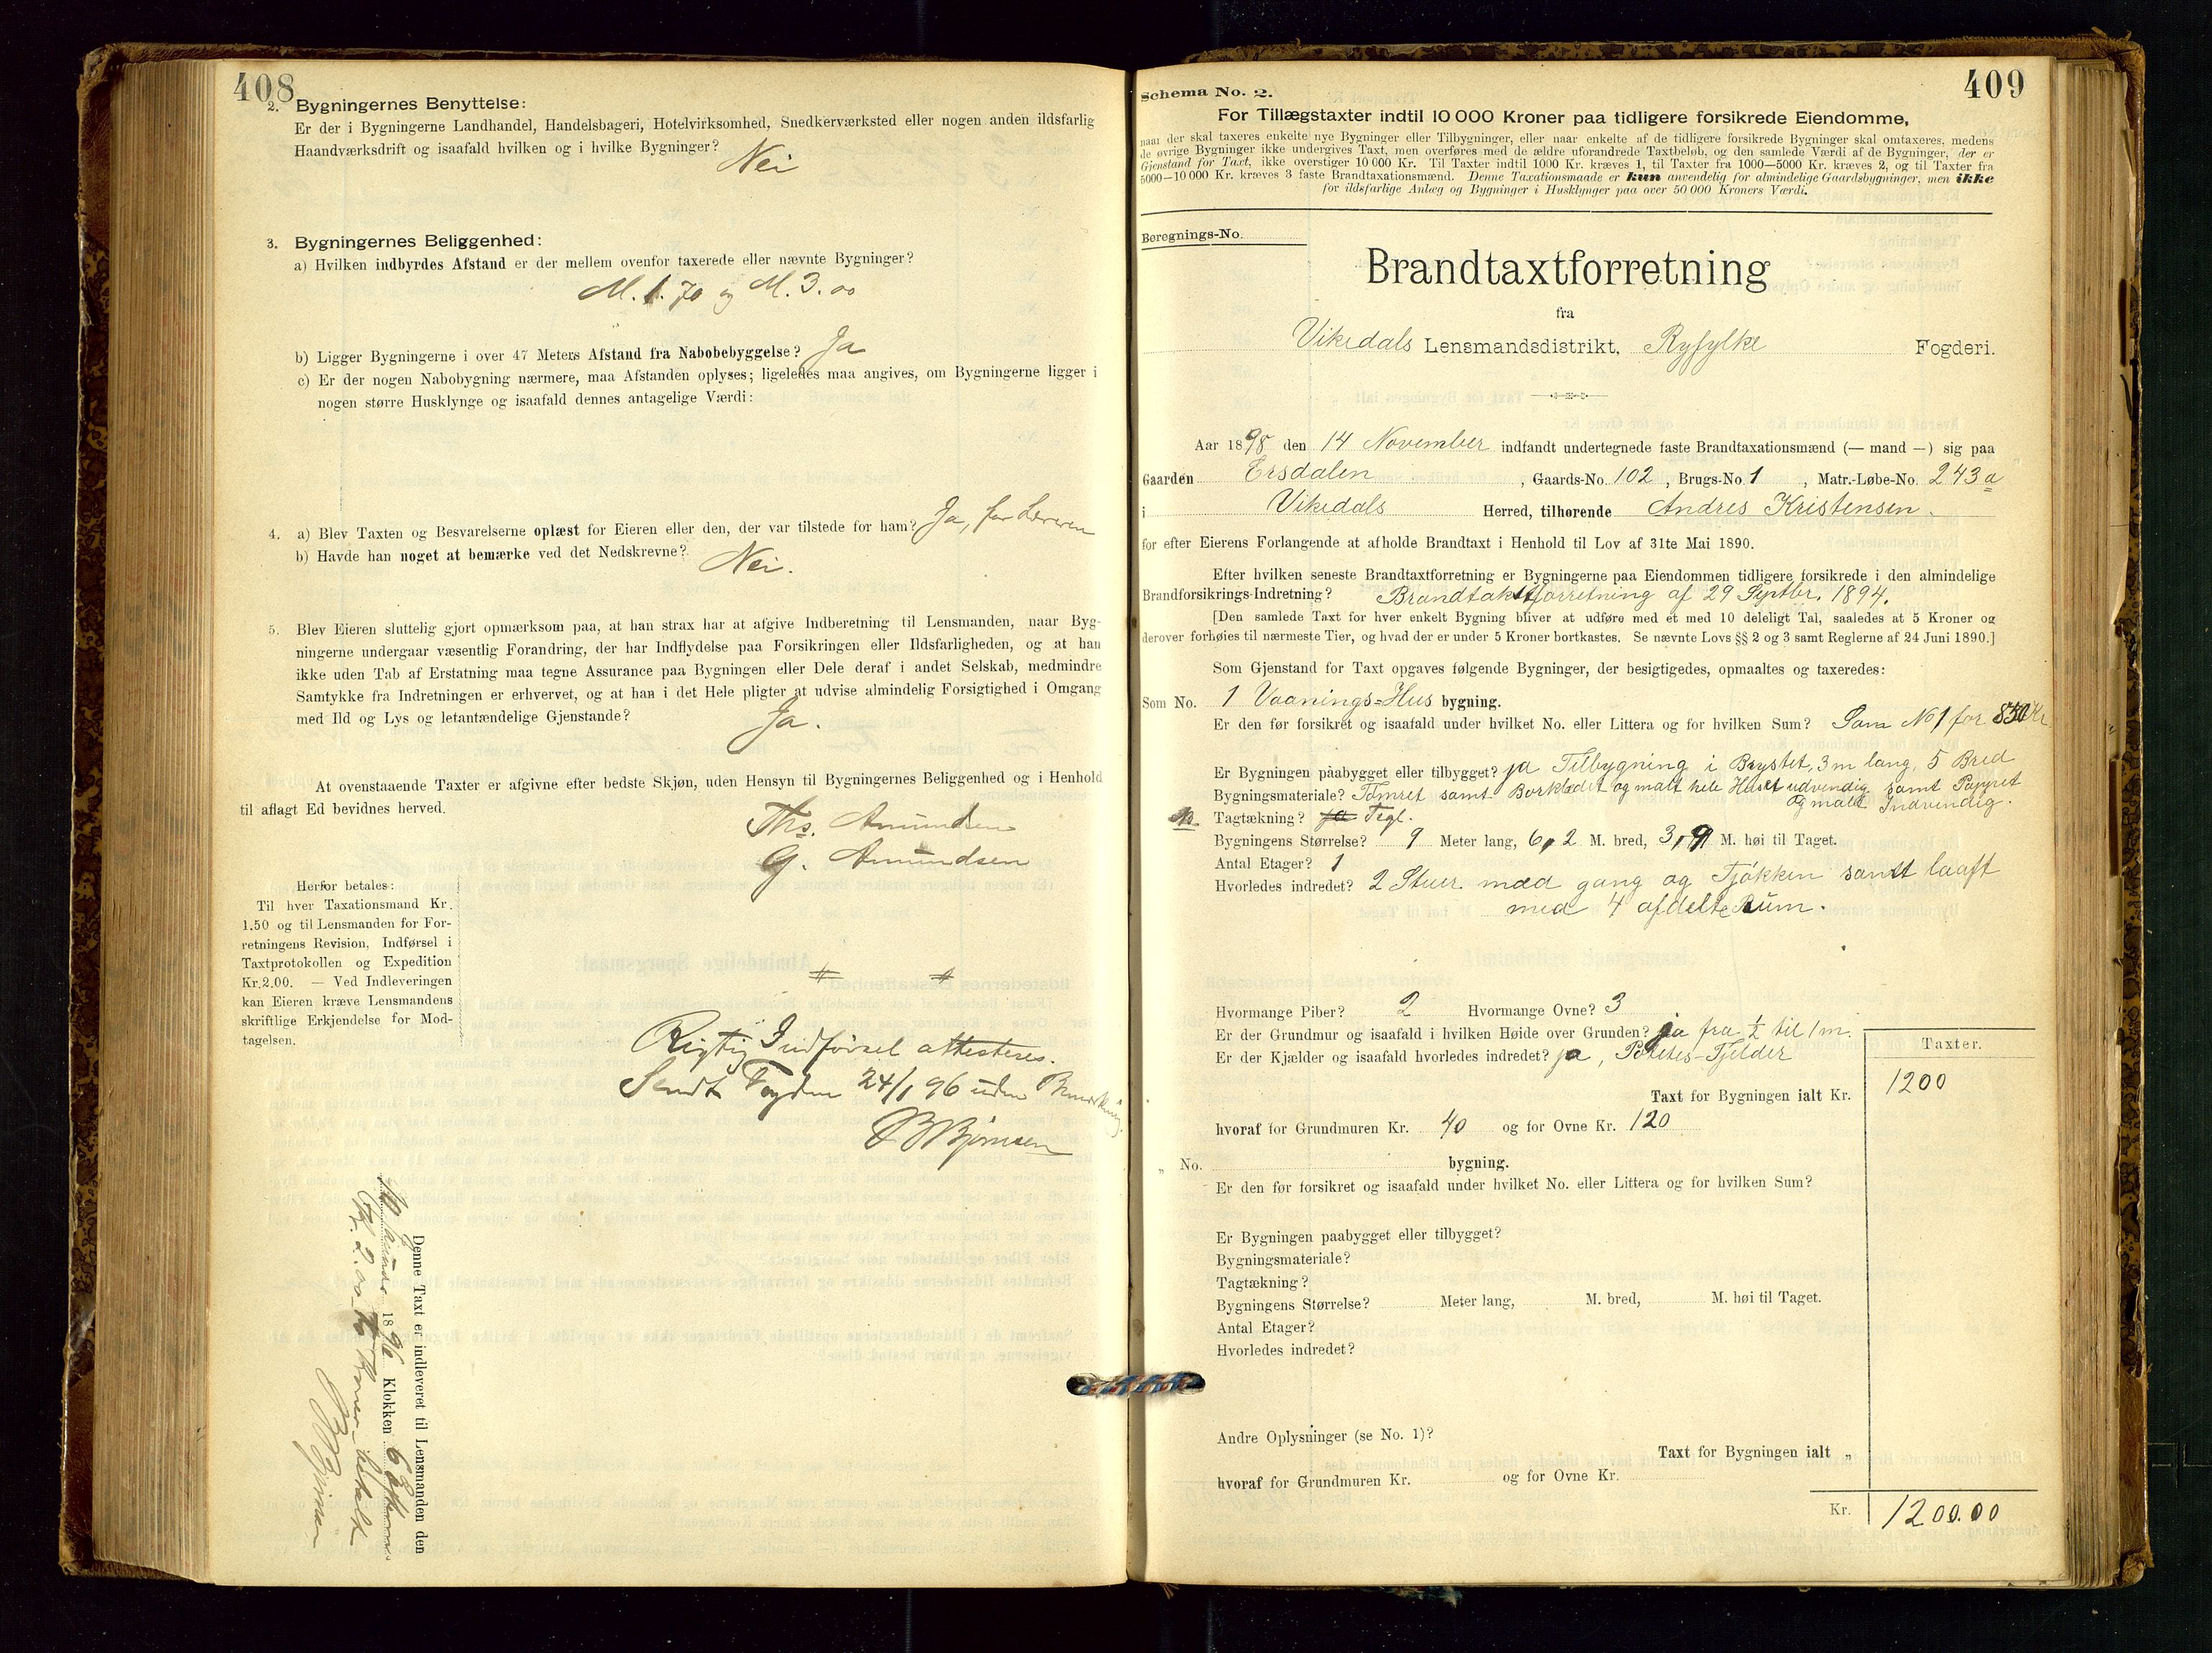 408
2. Bygningernes Benyttelse:
Er der i Bygningerne Landhandel, Handelsbageri, Hotelvirksomhed, Snedkerværksted eller nogen anden ildsfarlig
Haandværksdrift og isaafald hvilken og i hvilke Bygninger? Nei
3. Bygningernes Beliggenhed:
a) Hvilken indbyrdes Afstand er der mellem ovenfor taxerede eller nævnte Bygninger?
M. 1.70 og M. 3.00
b) Ligger Bygningerne i over 47 Meters Afstand fra Nabobebyggelse? Ja
c) Er der nogen Nabobygning nærmere, maa Afstanden oplyses; ligeledes maa angives, om Bygningerne ligger i
nogen større Husklynge og isaafald dennes antagelige Værdi:
4. a) Blev Taxten og Besvarelserne oplæst for Eieren eller den, der var tilstede for ham? Ja, for
b) Havde han noget at bemærke ved det Nedskrevne? Nei.
5. Blev Eieren sluttelig gjort opmærksom paa, at han strax har at afgive Indberetning til Lensmanden, naar Byg-
ningerne undergaar væsentlig Forandring, der har Indflydelse paa Forsikringen eller Ildsfarligheden, og at han
ikke uden Tab af Erstatning maa tegne Assurance paa Bygningen eller Dele deraf i andet Selskab, medmindre
Samtykke fra Indretningen er erhvervet, og at han i det Hele pligter at udvise almindelig Forsigtighed i Omgang
med Ild og Lys og letantændelige Gjenstande? Ja.
At ovenstaaende Taxter er afgivne efter bedste Skjøn, uden Hensyn til Bygningernes Beliggenhed og i Henhold
til aflagt Ed bevidnes herved.
Ths. Amundsen
G. Amundsen
Herfor betales:
Til hver Taxationsmand Kr.
1.50 og til Lensmanden for For-
retningens Revision, Indførsel i
Taxtprotokollen og Expedition
Kr. 2.00. — Ved Indleveringen
kan Eieren kræve Lensmandens
skriftlige Erkjendelse for Mod-
tagelsen.
Rigtig Indførsel attesteres.
Sendt Fogden 24/1 96 uden Bemærkning.
B Bjørnsen
Denne Taxt er indleveret til Lensmanden den
1896 Klokken 6 Efterm
Kr. 2.00 - to Kroner - betalt
B Bjørnsen
409
Schema No. 2.
For Tillægstaxter indtil 10 000 Kroner paa tidligere forsikrede Eiendomme,
naar der skal taxeres enkelte nye Bygninger eller Tilbygninger, eller naar enkelte af de tidligere forsikrede Bygninger skal omtaxeres, medens
de øvrige Bygninger ikke undergives Taxt, men overføres med de ældre uforandrede Taxtbeløb, og den samlede Værdi af de Bygninger, der er
Gjenstand for Taxt, ikke overstiger 10 000 Kr. Til Taxter indtil 1000 Kr. kræves 1, til Taxter fra 1000—5000 Kr. kræves 2, og til Taxter fra
5000—10 000 Kr. kræves 3 faste Brandtaxationsmænd. Denne Taxationsmaade er kun anvendelig for almindelige Gaardsbygninger, men ikke
for ildsfarlige Anlæg og Bygninger i Husklynger paa over 50 000 Kroners Værdi.
Beregnings-No.
Brandtaxtforretning
fra
Vikedals Lensmandsdistrikt, Ryfylke Fogderi.
Aar 1898 den 14 November indfandt undertegnede faste Brandtaxationsmænd (— mand —) sig paa
Gaarden Ersdalen, Gaards-No. 102, Brugs-No. 1, Matr.-Løbe-No. 243a
i Vikedals Herred, tilhørende Andres Kristensen.
for efter Eierens Forlangende at afholde Brandtaxt i Henhold til Lov af 31te Mai 1890.
Efter hvilken seneste Brandtaxtforretning er Bygningerne paa Eiendommen tidligere forsikrede i den almindelige
Brandforsikrings-Indretning? Brandtakstforretning af 29 Septbr. 1894.
[Den samlede Taxt for hver enkelt Bygning bliver at udføre med et med 10 deleligt Tal, saaledes at 5 Kroner og
derover forhøies til nærmeste Tier, og hvad der er under 5 Kroner bortkastes. Se nævnte Lovs §§ 2 og 3 samt Reglerne af 24 Juni 1890.]
Som Gjenstand for Taxt opgaves følgende Bygninger, der besigtigedes, opmaaltes og taxeredes:
Som No. 1 Vaanings=Hus bygning.
Er den før forsikret og isaafald under hvilket No. eller Littera og for hvilken Sum? Som No 1 for 850 Kr
Er Bygningen paabygget eller tilbygget? ja Tilbygning i Brystet, 3 m lang, 5 Bred
Bygningsmateriale? Tømret samt Borklædt og malt hele Huset udvendig samt Pappret
og malt Indvendig.
Tagtækning? Tegl.
Bygningens Størrelse? 9 Meter lang, 6,2 M. bred, 3,9 M. høi til Taget.
Antal Etager? 1
Hvorledes indredet? 2 Stuer med gang og Tjøkken samt laaft
med 4 afdelte Rum.
Hvormange Piber? 2 Hvormange Ovne? 3
Er der Grundmur og isaafald i hvilken Høide over Grunden? ja fra ½ til 1 m.
Er der Kjælder og isaafald hvorledes indredet? ja, Potetes-Tjelder
Taxter.
Taxt for Bygningen ialt Kr. 1200
hvoraf for Grundmuren Kr. 40 og for Ovne Kr. 120
„ No. bygning.
Er den før forsikret og isaafald under hvilket No. eller Littera og for hvilken Sum?
Er Bygningen paabygget eller tilbygget?
Bygningsmateriale?
Tagtækning?
Bygningens Størrelse? Meter lang, M. bred, M. høi til Taget.
Antal Etager?
Hvorledes indredet?
Andre Oplysninger (se No. 1)?
Taxt for Bygningen ialt „
hvoraf for Grundmuren Kr. og for Ovne Kr.
Kr. 1200.00